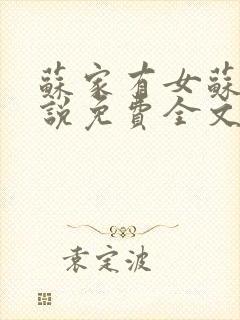 蘇家有女蘇
說免費全文
袁定波